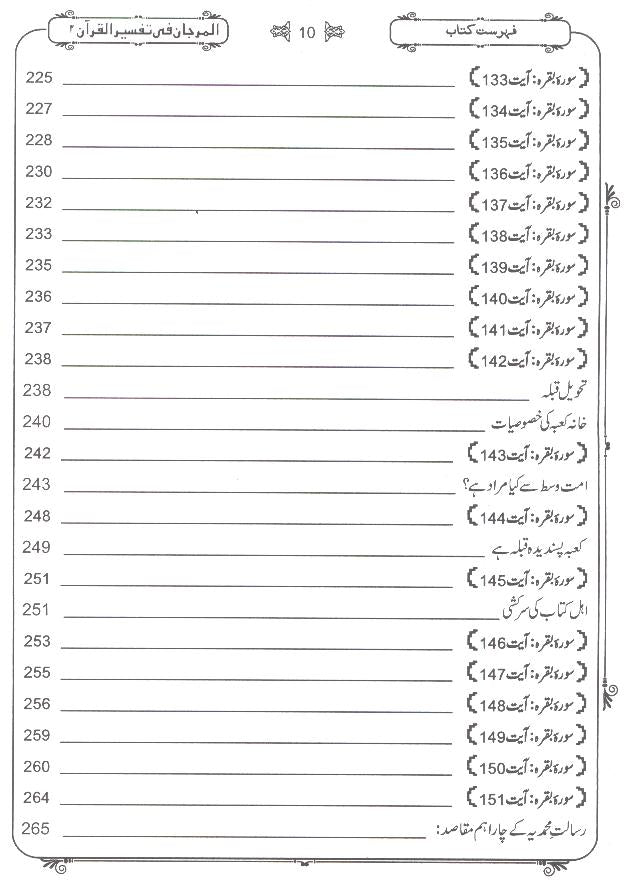 فہرست کتاب 10 المرجان فی تفسیر القرآن ۲
﴿سورۂ بقرہ: آیت 133﴾ 225
﴿سورۂ بقرہ: آیت 134﴾ 227
﴿سورۂ بقرہ: آیت 135﴾ 228
﴿سورۂ بقرہ: آیت 136﴾ 230
﴿سورۂ بقرہ: آیت 137﴾ 232
﴿سورۂ بقرہ: آیت 138﴾ 233
﴿سورۂ بقرہ: آیت 139﴾ 235
﴿سورۂ بقرہ: آیت 140﴾ 236
﴿سورۂ بقرہ: آیت 141﴾ 237
﴿سورۂ بقرہ: آیت 142﴾ 238
تحویل قبلہ 238
خانہ کعبہ کی خصوصیات 240
﴿سورۂ بقرہ: آیت 143﴾ 242
امت وسط سے کیا مراد ہے؟ 243
﴿سورۂ بقرہ: آیت 144﴾ 248
کعبہ پسندیدہ قبلہ ہے 249
﴿سورۂ بقرہ: آیت 145﴾ 251
اہل کتاب کی سرکشی 251
﴿سورۂ بقرہ: آیت 146﴾ 253
﴿سورۂ بقرہ: آیت 147﴾ 255
﴿سورۂ بقرہ: آیت 148﴾ 256
﴿سورۂ بقرہ: آیت 149﴾ 259
﴿سورۂ بقرہ: آیت 150﴾ 260
﴿سورۂ بقرہ: آیت 151﴾ 264
رسالتِ محمدیہ کے چار اہم مقاصد: 265